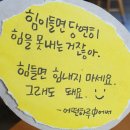 힘이들면 당연히
힘을 못내는 거잖아.
힘들면 힘내지 마세요.
그래도 돼요.